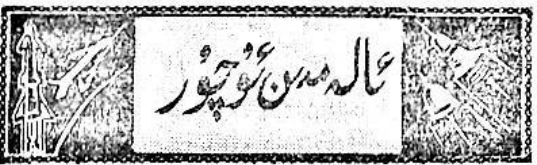 ئالەمدىن ئۇچۇر